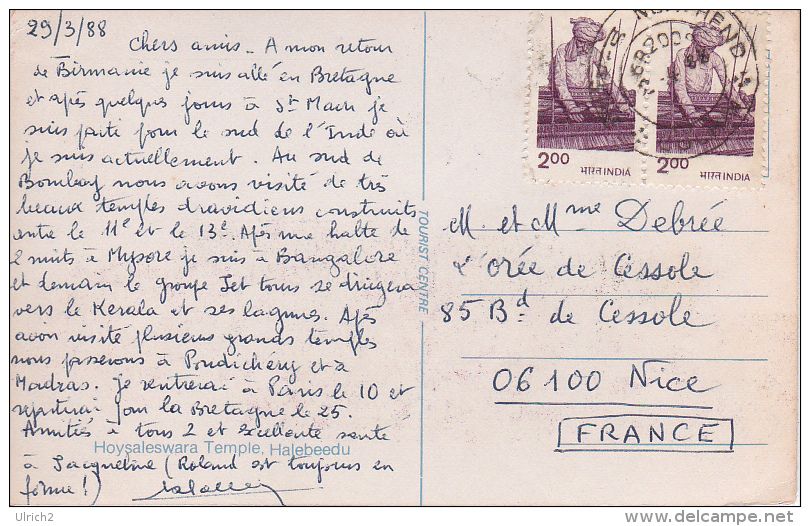 29/3/88
Chers amis _ A mon retour
de Birmanie je suis allé en Bretagne
et après quelques jours à St Macu je
suis parti pour le sud de l'Inde où
je suis actuellement. Au sud de
Bombay nous avons visité de très
beaux temples dravidiens construits
entre le 11e et le 13e. Après une halte de
2 nuits à Mysore je suis à Bangalore
et demain le groupe Jet tours se dirigera
vers le Kerala et ses lagunes. Après
avoir visité plusieurs grands temples
nous passerons à Pondichéry et à
Madras. Je rentrerai à Paris le 10 et
repartirai pour la Bretagne le 25.
Amitiés à tous 2 et excellente santé
à Jacqueline (Roland est toujours en
forme!)
Hoysaleswara Temple, Halebeedu
TOURIST CENTRE
2.00 भारत INDIA
2.00 भारत INDIA
M. et Mme Debrée
L'orée de Cessole
85 Bd de Cessole
06100 Nice
FRANCE
© Ulrich2
http://www.delcampe.net